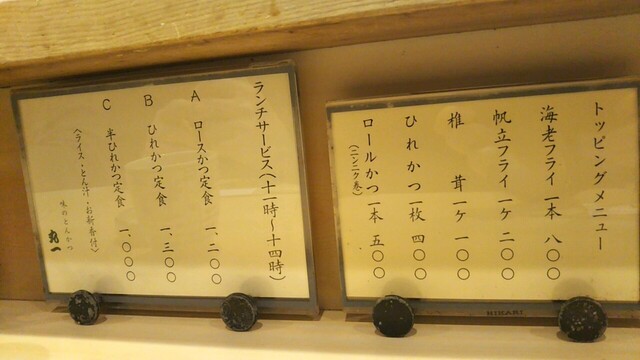 トッピングメニュー
海老フライ 一本 八〇〇
帆立フライ 一ケ 二〇〇
椎茸 一ケ 一〇〇
ひれかつ 一枚 四〇〇
ロールかつ 一本 五〇〇
(ニンニク巻)
HIKARI
ランチサービス(十一時~十四時)
A ロースかつ定食 一、二〇〇
B ひれかつ定食 一、三〇〇
C 半ひれかつ定食 一、〇〇〇
(ライス・とん汁・お新香付)
味のとんかつ 丸一